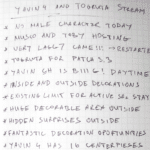 YAVIN 4 AND TOGRUTA STREAM
* NS MALE CHARACTER TODAY
* MUSHO AND TABY HOSTING
* VERY LAGGY GAME!!! → RESTARTED
* TOGRUTA FOR PATCH 3.3
* YAVIN GH IS BIIIG! DAYTIME
* INSIDE AND OUTSIDE DECORATIONS
* EXISTING LIMIT FOR ACTIVE STAY
* HUGE DECORABLE AREA OUTSIDE
* HIDDEN SURPRISES OUTSIDE
* FANTASTIC DECORATION OPORTUNITIES
* YAVIN 4 HAS 16 CENTERPIECES